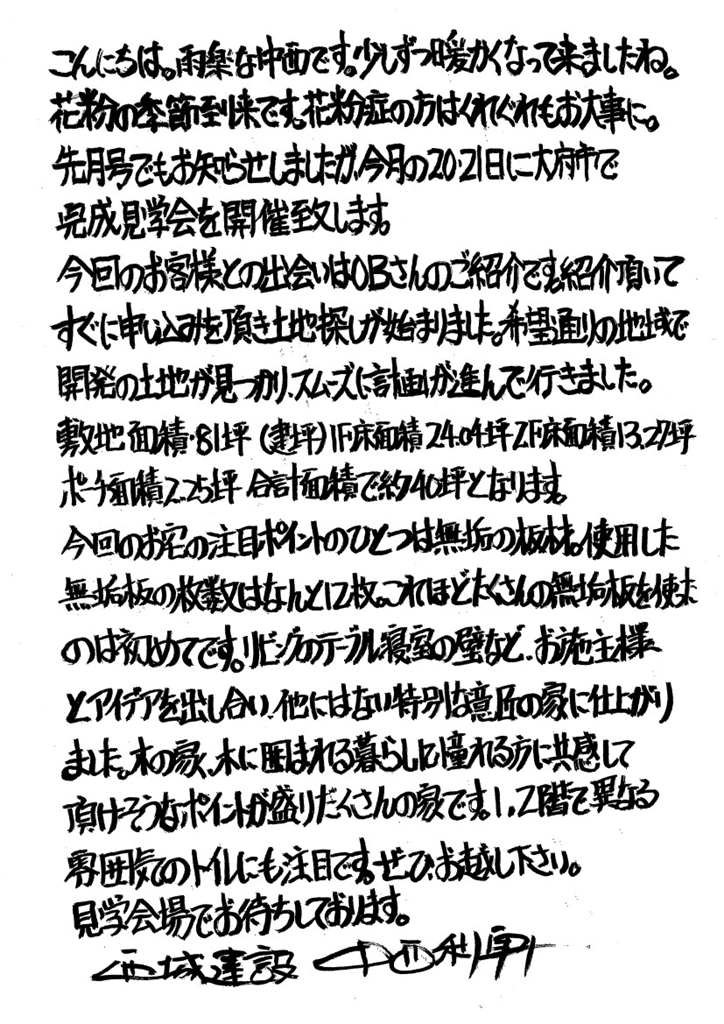 こんにちは。雨楽な中西です。少しずつ暖かくなって来ましたね。
花粉の季節到来です。花粉症の方はくれぐれもお大事に。
先月号でもお知らせしましたが、今月の20・21日に大府市で
完成見学会を開催致します。
今回のお客様との出会いはOBさんのご紹介です。紹介頂いて
すぐに申し込みを頂き土地探しが始まりました。希望通りの地域で
開発の土地が見つかり、スムーズに計画が進んで行きました。
敷地面積・81坪 (建坪) 1F床面積24.04坪 2F床面積13.27坪
ポーチ面積2.25坪 合計面積で約40坪となります。
今回のお宅の注目ポイントのひとつは無垢の板材。使用した
無垢板の枚数はなんと12枚。これほどたくさんの無垢板を使った
のは初めてです。リビングのテーブル、寝室の壁など、お施主様
とアイデアを出し合い、他にはない特別な意匠の家に仕上がり
ました。木の家、木に囲まれる暮らしに憧れる方に共感して
頂けそうなポイントが盛りだくさんの家です。1、2階で異なる
雰囲気のトイレにも注目です。ぜひ、お越し下さい。
見学会場でお待ちしております。
西城建設 中西利